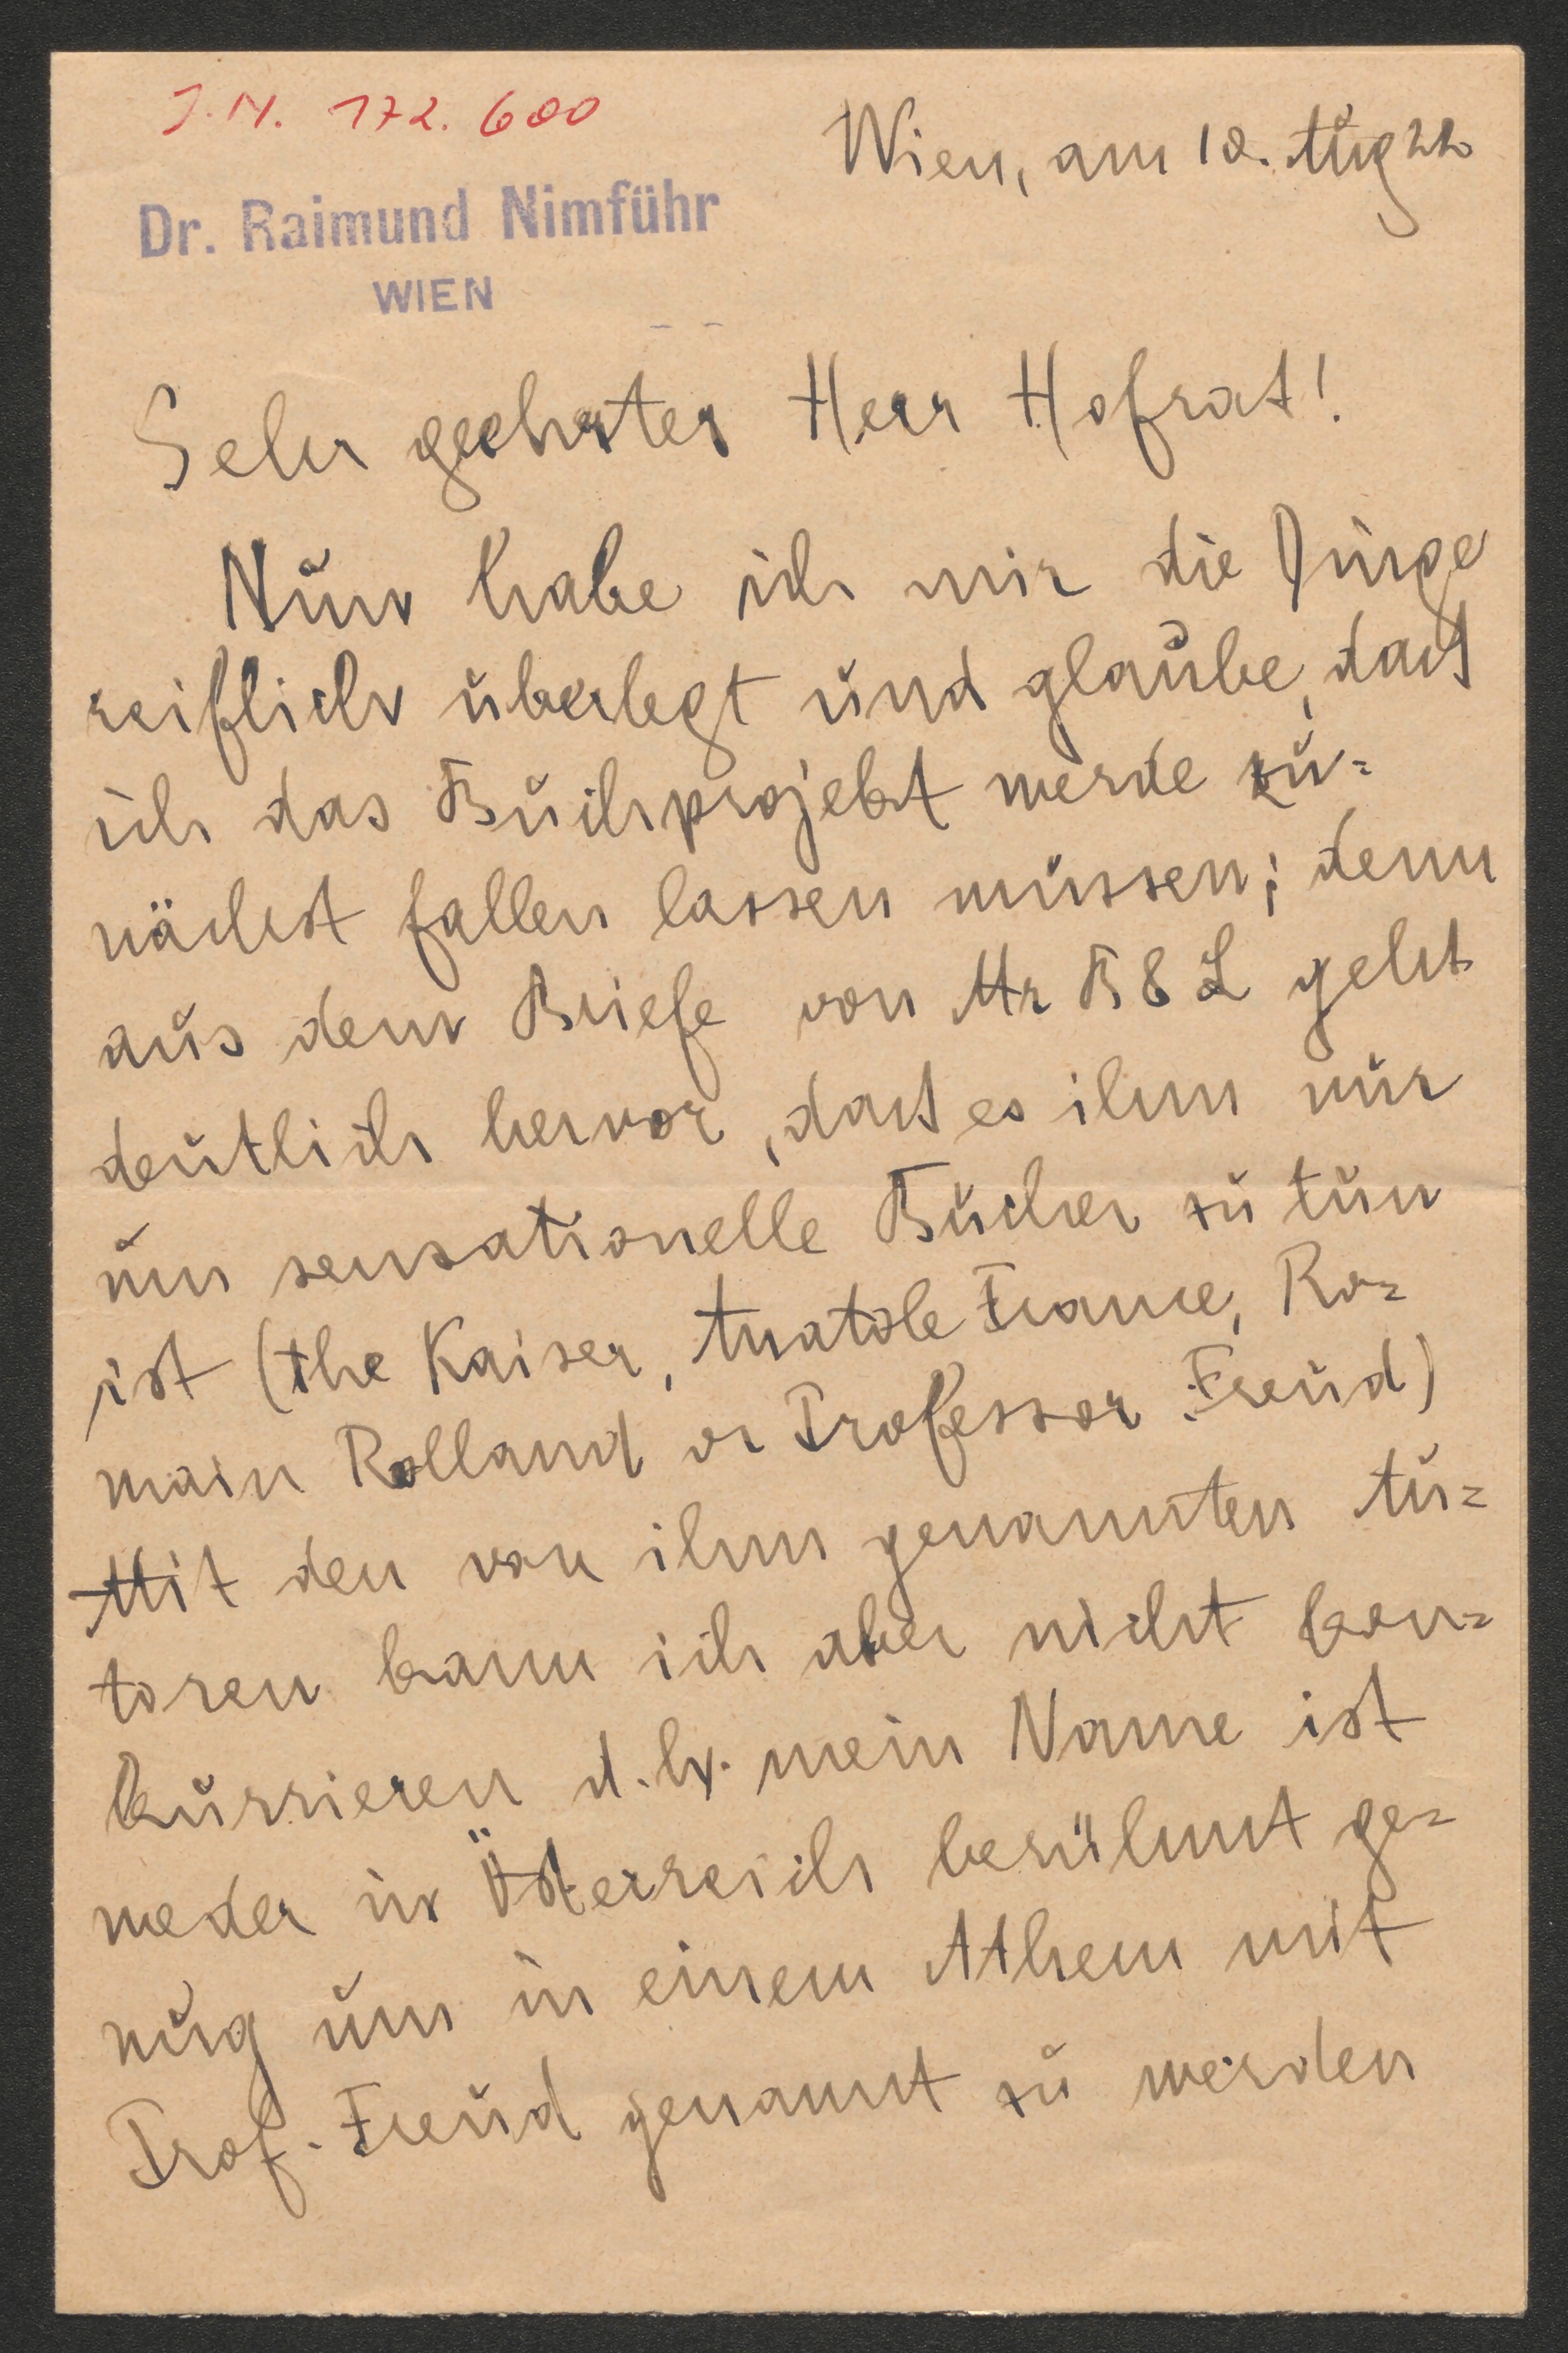 J.N. 172.600
Wien, am 10. Aug 22
Dr. Raimund Nimführ
WIEN
Sehr geehrter Herr Hofrat!
Nun habe ich mir die Dinge
reiflich überlegt und glaube, daß
ich das Buchprojekt werde zu=
nächst fallen lassen müssen; denn
aus dem Briefe von Mr B & L geht
deutlich hervor, daß es ihm nur
um sensationelle Bücher zu tun
ist (the Kaiser, Anatole France, Ro=
main Rolland or Professor Freud)
Mit den von ihm genannten Au=
toren kann ich aber nicht kon=
kurrieren d.h. mein Name ist
weder in Österreich berühmt ge=
nug um in einem Athem mit
Prof. Freud genannt zu werden